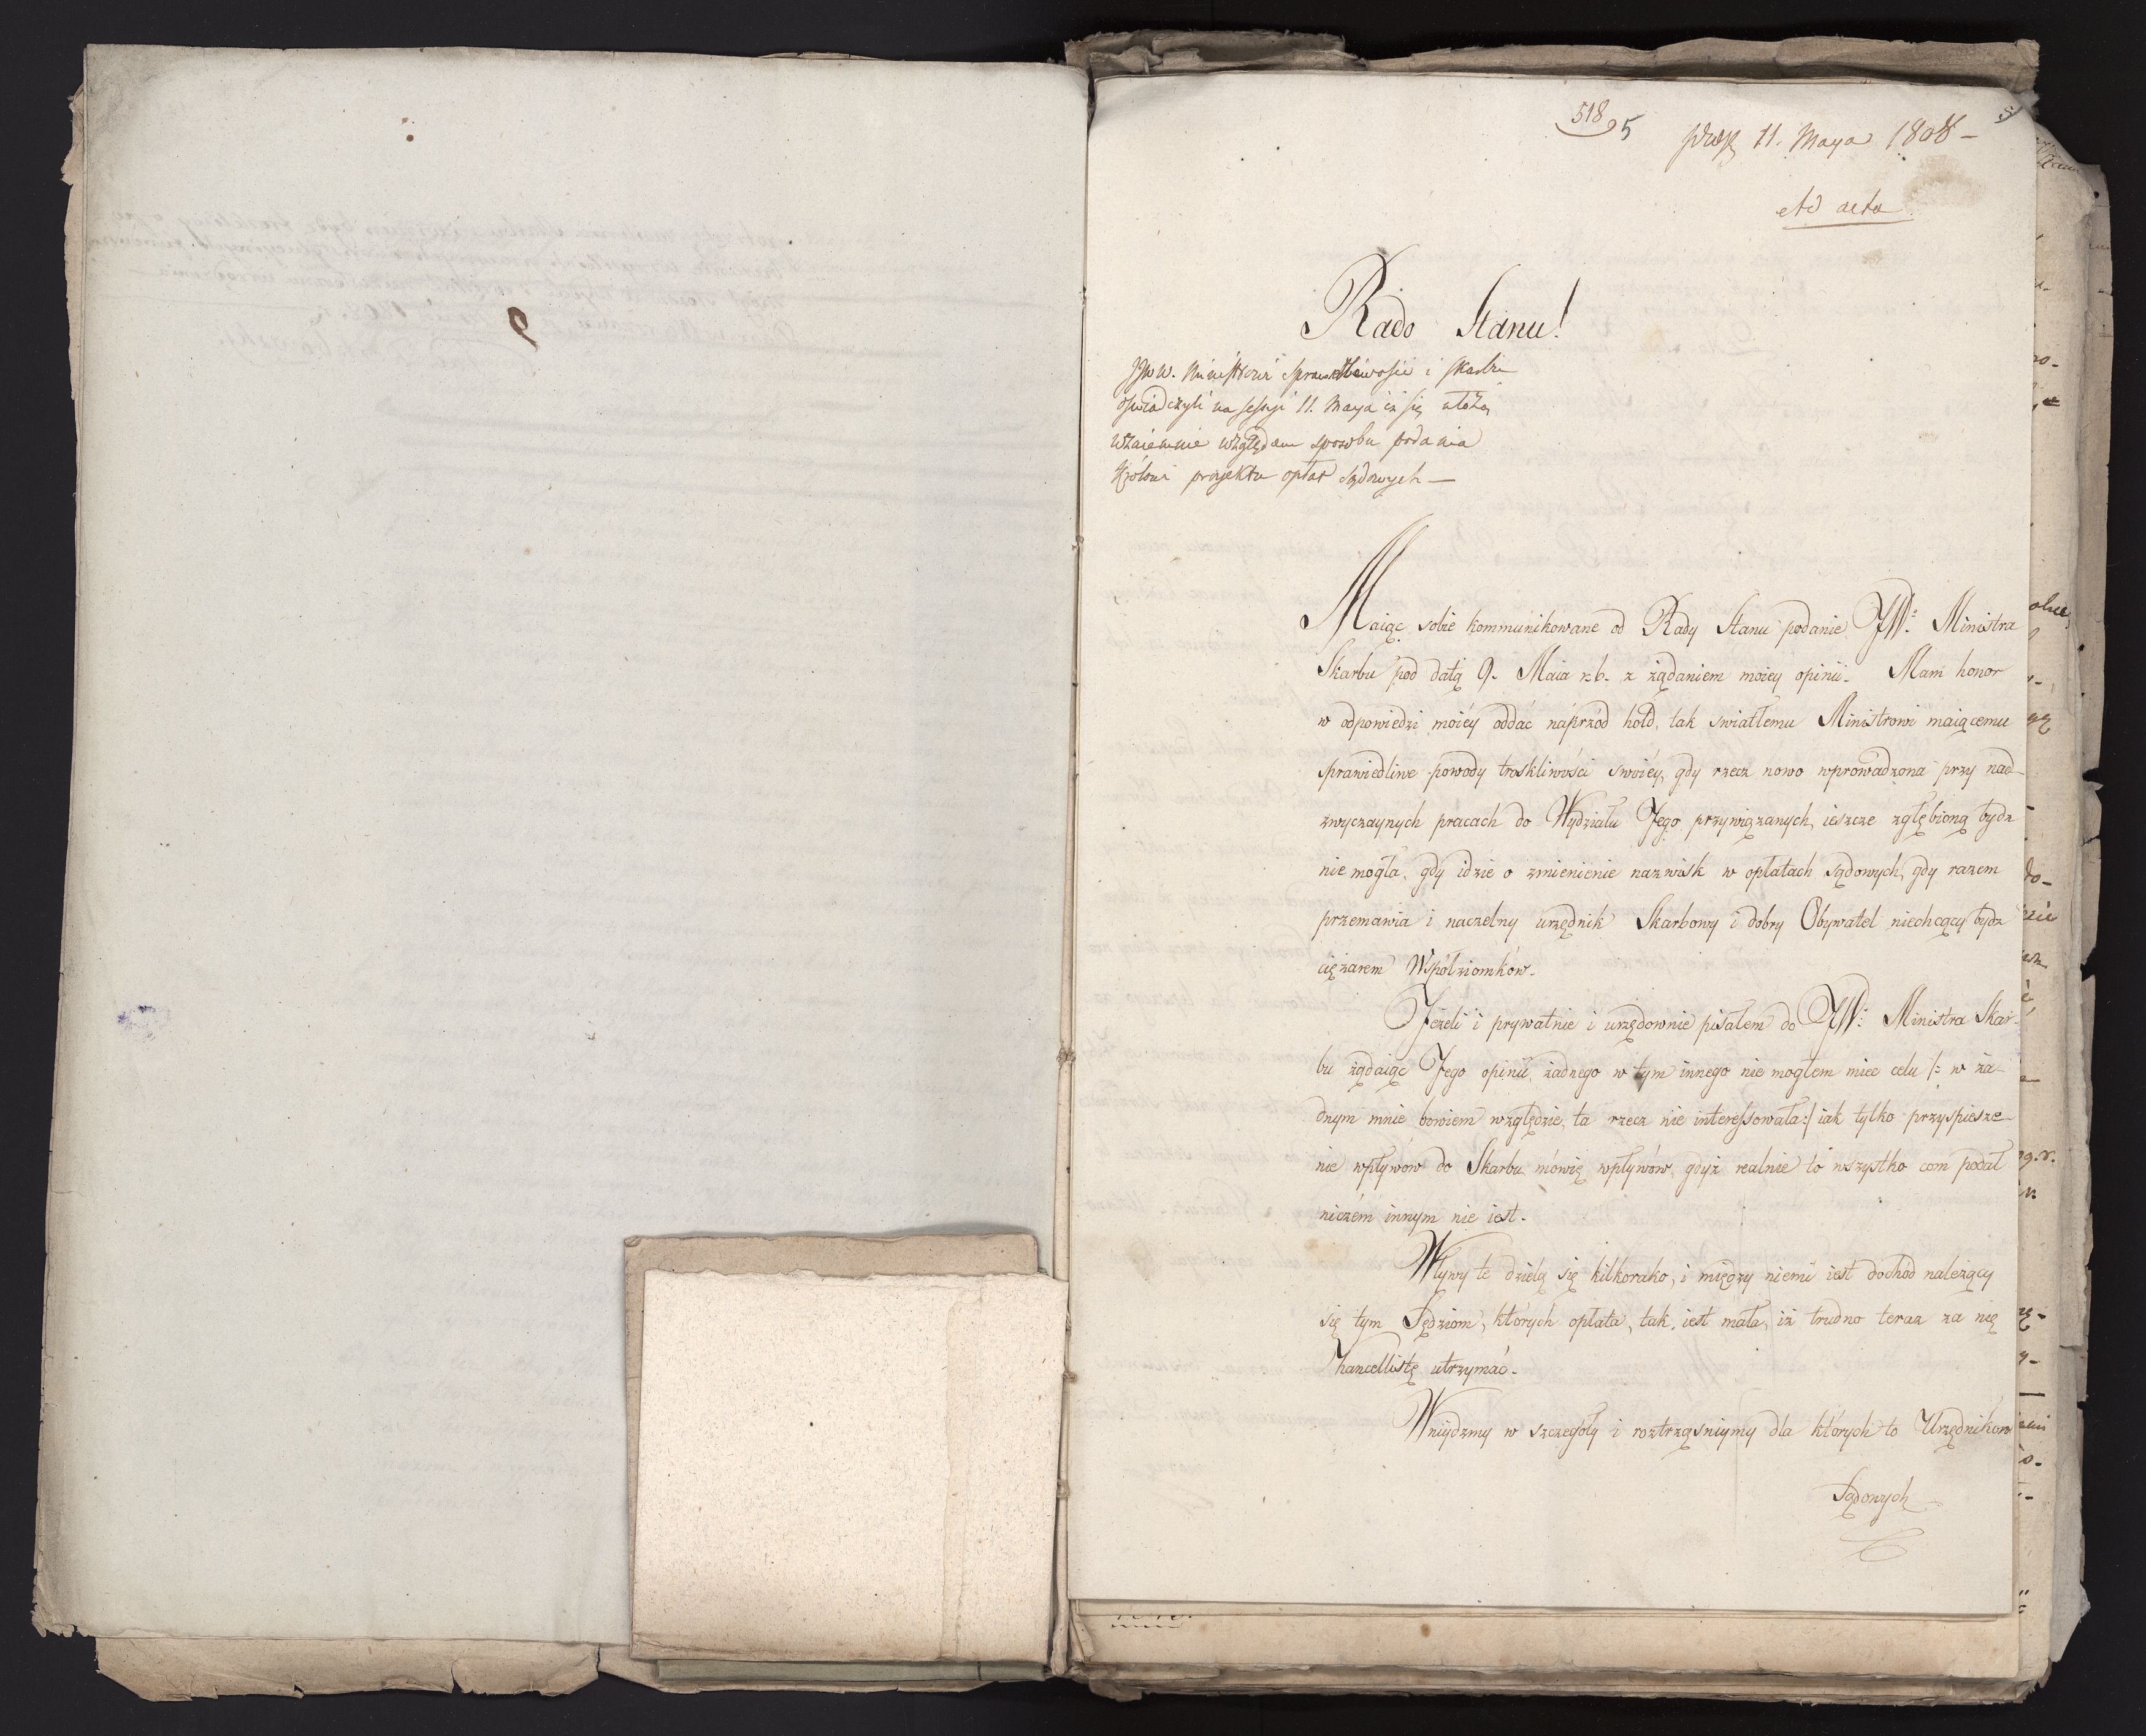 518
95
5
11. Maya 1808 -
ad acta
Rado Stanu!
JJWW. Ministrowie Sprawiedliwosci i Skarbu
oswiadczyli na sessyi 11. Maya iż się ułożą
wzaiemnie względem sposobu podania
Królowi projektu opłat sądowych —
Maiąc sobie kommunikowane od Rady Stanu podanie JW: Ministra
Skarbu pod datą 9. Maia r.b. z żądaniem moiey opinii. Mam honor
w odpowiedzi moiéy oddać náprzód hołd, tak swiatłemu Ministrowi maiącemu
sprawiedliwe powody troskliwości swoiéy, gdy rzecz nowo wprowadzona przy nad-
zwyczaynych prácach do Wydziału Jego przywiązanych, ieszcze zgłębioną bydz
nie mogła, gdy idzie o zmienienie nazwisk w opłatach sądowych, gdy razem
przemawia i naczelny urzędnik Skarbowy i dobry Obywatel niechcący bydz
ciężarem Wspołziomków.
Jeżeli i prywatnie i urzędownie pisałem do JW: Ministra Skar-
bu żądaiąc Jego opinii, żadnego w tym innego nie mogłem miec celu /: w ża-
dnym mnie bowiem względzie, ta rzecz nie interessowała :/ iak tylko przyspiesze-
nie wpływow do Skarbu, mówię wpływów, gdyż realnie to wszystko com podał
niczém innym nie iest.
Wpływy te dzielą się kilkorako, i między niemi iest dochod należący
się tym Sędziom, których opłata, tak iest mała, iż trudno teraz za nię
Kancellistę utrzymać.
Wniydzmy w szczegoły i roztrząsniymy dla których to Urzędników
Sądowych